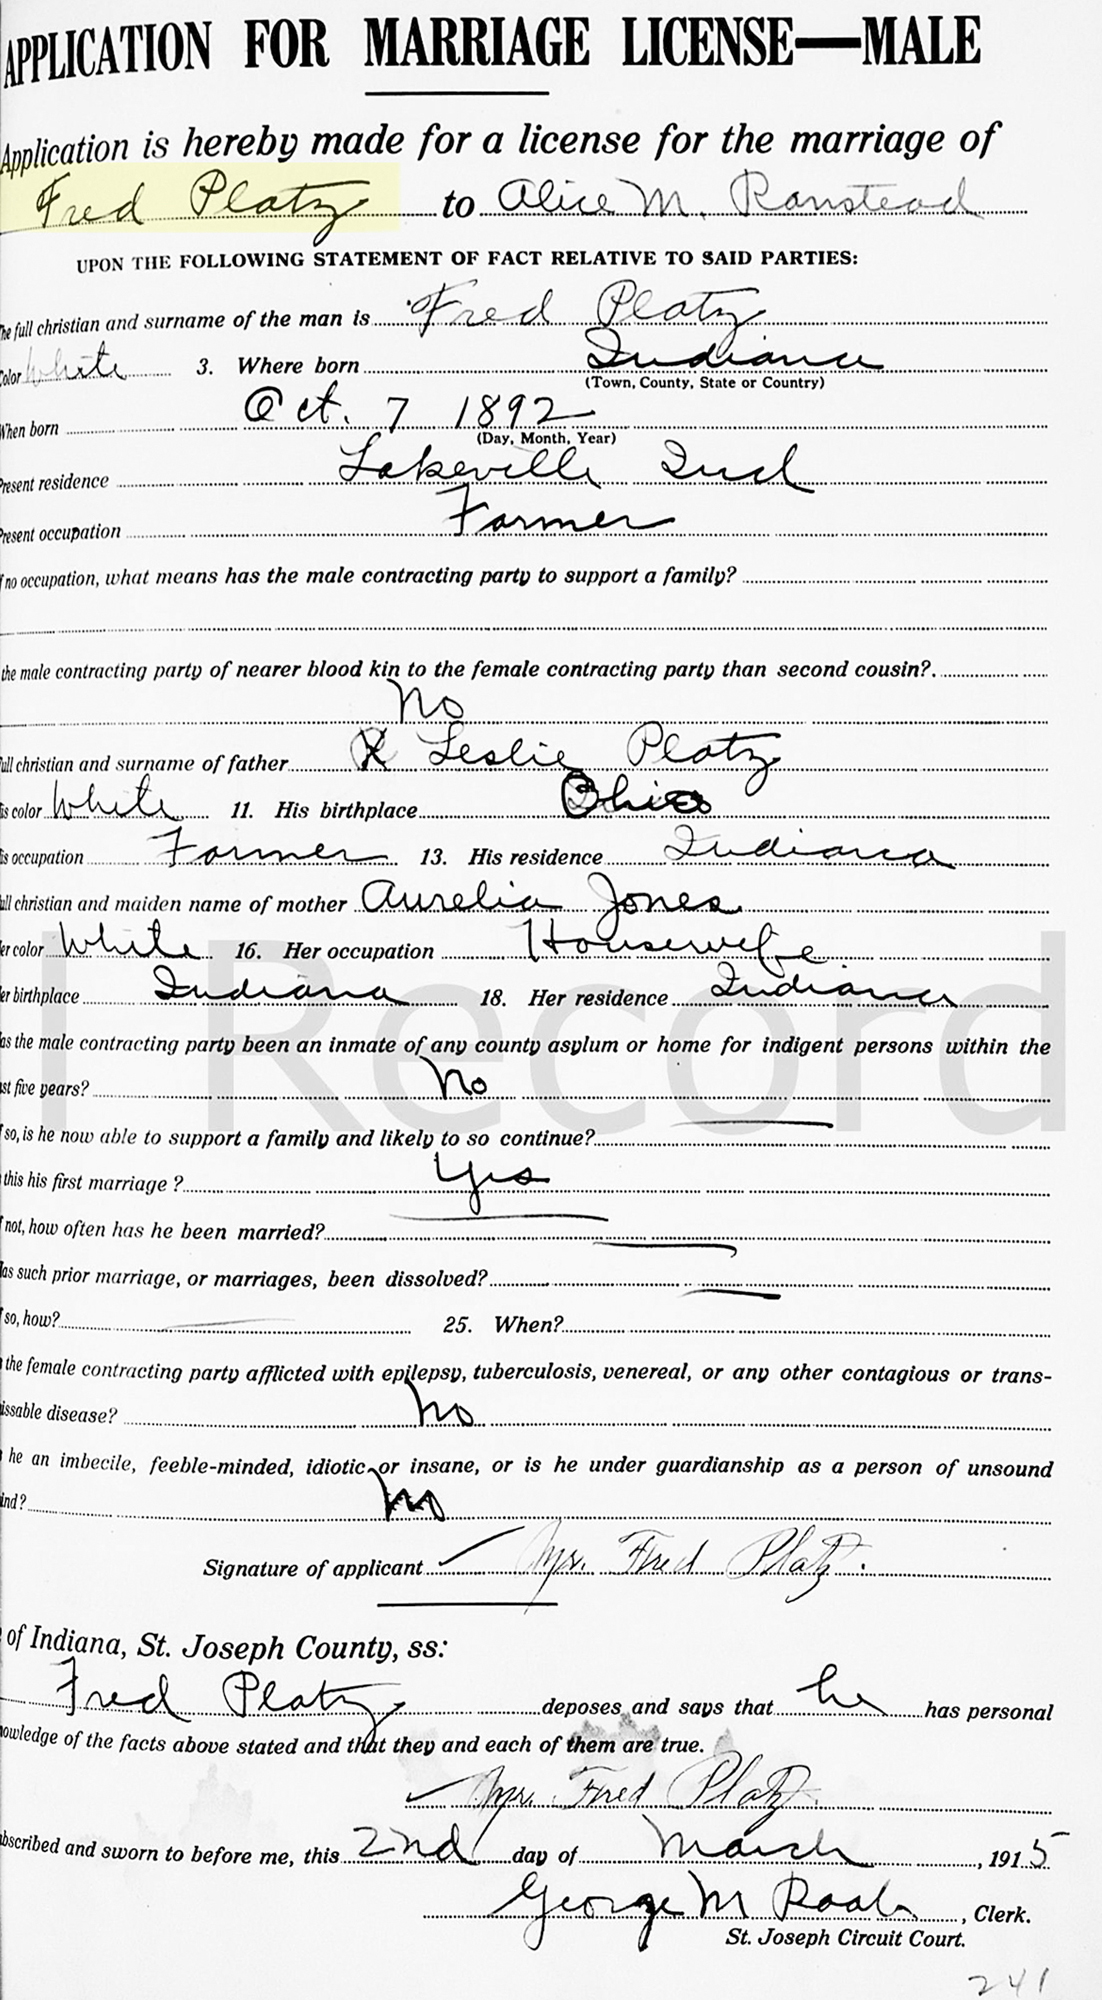 APPLICATION FOR MARRIAGE LICENSE—MALE
Application is hereby made for a license for the marriage of
Fred Platz to Alice M. Ranstead
UPON THE FOLLOWING STATEMENT OF FACT RELATIVE TO SAID PARTIES:
he full christian and surname of the man is Fred Platz
Color White 3. Where born Indiana
(Town, County, State or Country)
When born Oct. 7 1892
(Day, Month, Year)
Present residence Lakeville Ind
Present occupation Farmer
f no occupation, what means has the male contracting party to support a family?
the male contracting party of nearer blood kin to the female contracting party than second cousin?
No
ull christian and surname of father Leslie Platz
is color White 11. His birthplace Ohio
is occupation Farmer 13. His residence Indiana
ull christian and maiden name of mother Aurelia Jones
er color White 16. Her occupation Housewife
er birthplace Indiana 18. Her residence Indiana
as the male contracting party been an inmate of any county asylum or home for indigent persons within the
st five years? No
f so, is he now able to support a family and likely to so continue?
this his first marriage? Yes
f not, how often has he been married?
as such prior marriage, or marriages, been dissolved?
f so, how? 25. When?
the female contracting party afflicted with epilepsy, tuberculosis, venereal, or any other contagious or trans-
issable disease? No
he an imbecile, feeble-minded, idiotic or insane, or is he under guardianship as a person of unsound
ind? No
Signature of applicant Mr. Fred Platz.
of Indiana, St. Joseph County, ss:
Fred Platz deposes and says that he has personal
nowledge of the facts above stated and that they and each of them are true.
Mr. Fred Platz
ubscribed and sworn to before me, this 2nd day of March, 1915
George M Raab, Clerk.
St. Joseph Circuit Court.
241
I Record